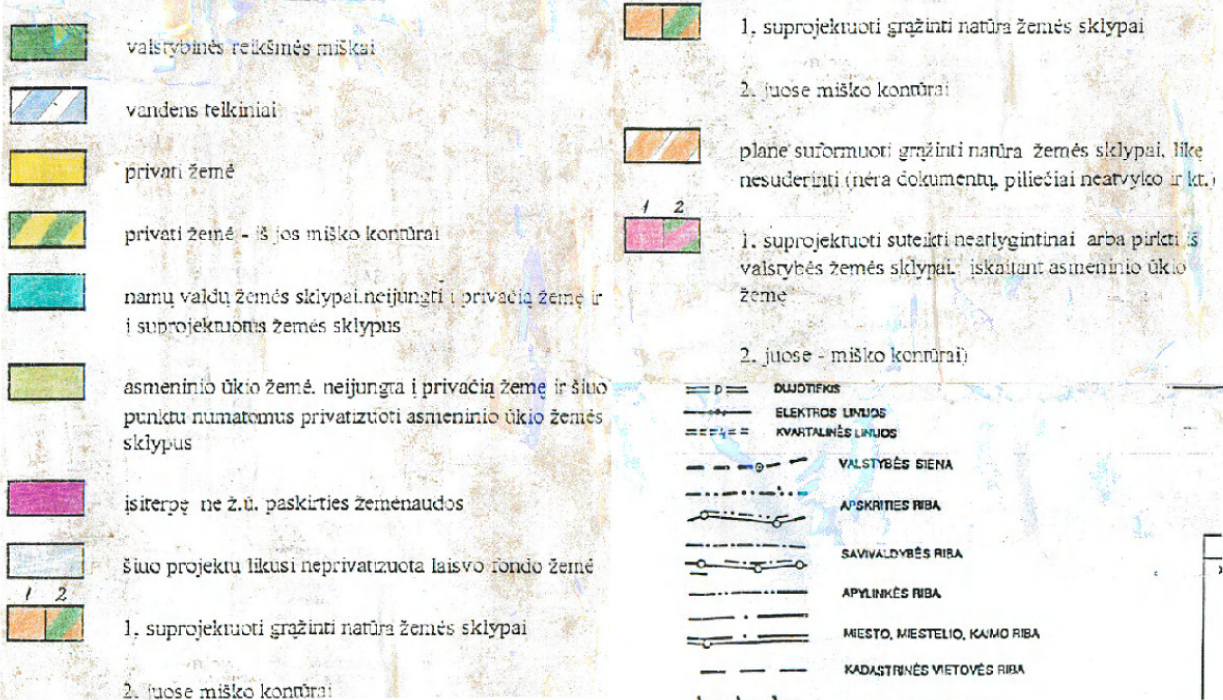 valstybinės reikšmės miškai
vandens telkiniai
privati žemė
privati žemė - iš jos miško kontūrai
namų valdų žemės sklypai,neijungti į privačią žemę ir
į suprojektuotus žemės sklypus
asmeninio ūkio žemė, neijungta į privačią žemę ir šiuo
punktu numatomus privatizuoti asmeninio ūkio žemės
sklypus
įsiterpę ne ž.ū. paskirties žemėnaudos
šiuo projektu likusi neprivatizuota laisvo fondo žemė
1 2
1. suprojektuoti grąžinti natūra žemės sklypai
2. juose miško kontūrai
1. suprojektuoti grąžinti natūra žemės sklypai
2. juose miško kontūrai
plane suformuoti grąžinti natūra žemės sklypai, likę
nesuderinti (nėra dokumentų, piliečiai neatvyko ir kt.)
1 2
1. suprojektuoti suteikti neatlygintinai arba pirkti iš
valstybės žemės sklypai, iskaitant asmeninio ūkio
žemę
2. juose - miško kontūrai)
D DUJOTIEKIS
ELEKTROS LINIJOS
KVARTALINĖS LINIJOS
VALSTYBĖS SIENA
APSKRITIES RIBA
SAVIVALDYBĖS RIBA
APYLINKĖS RIBA
MIESTO, MIESTELIO, KAIMO RIBA
KADASTRINĖS VIETOVĖS RIBA